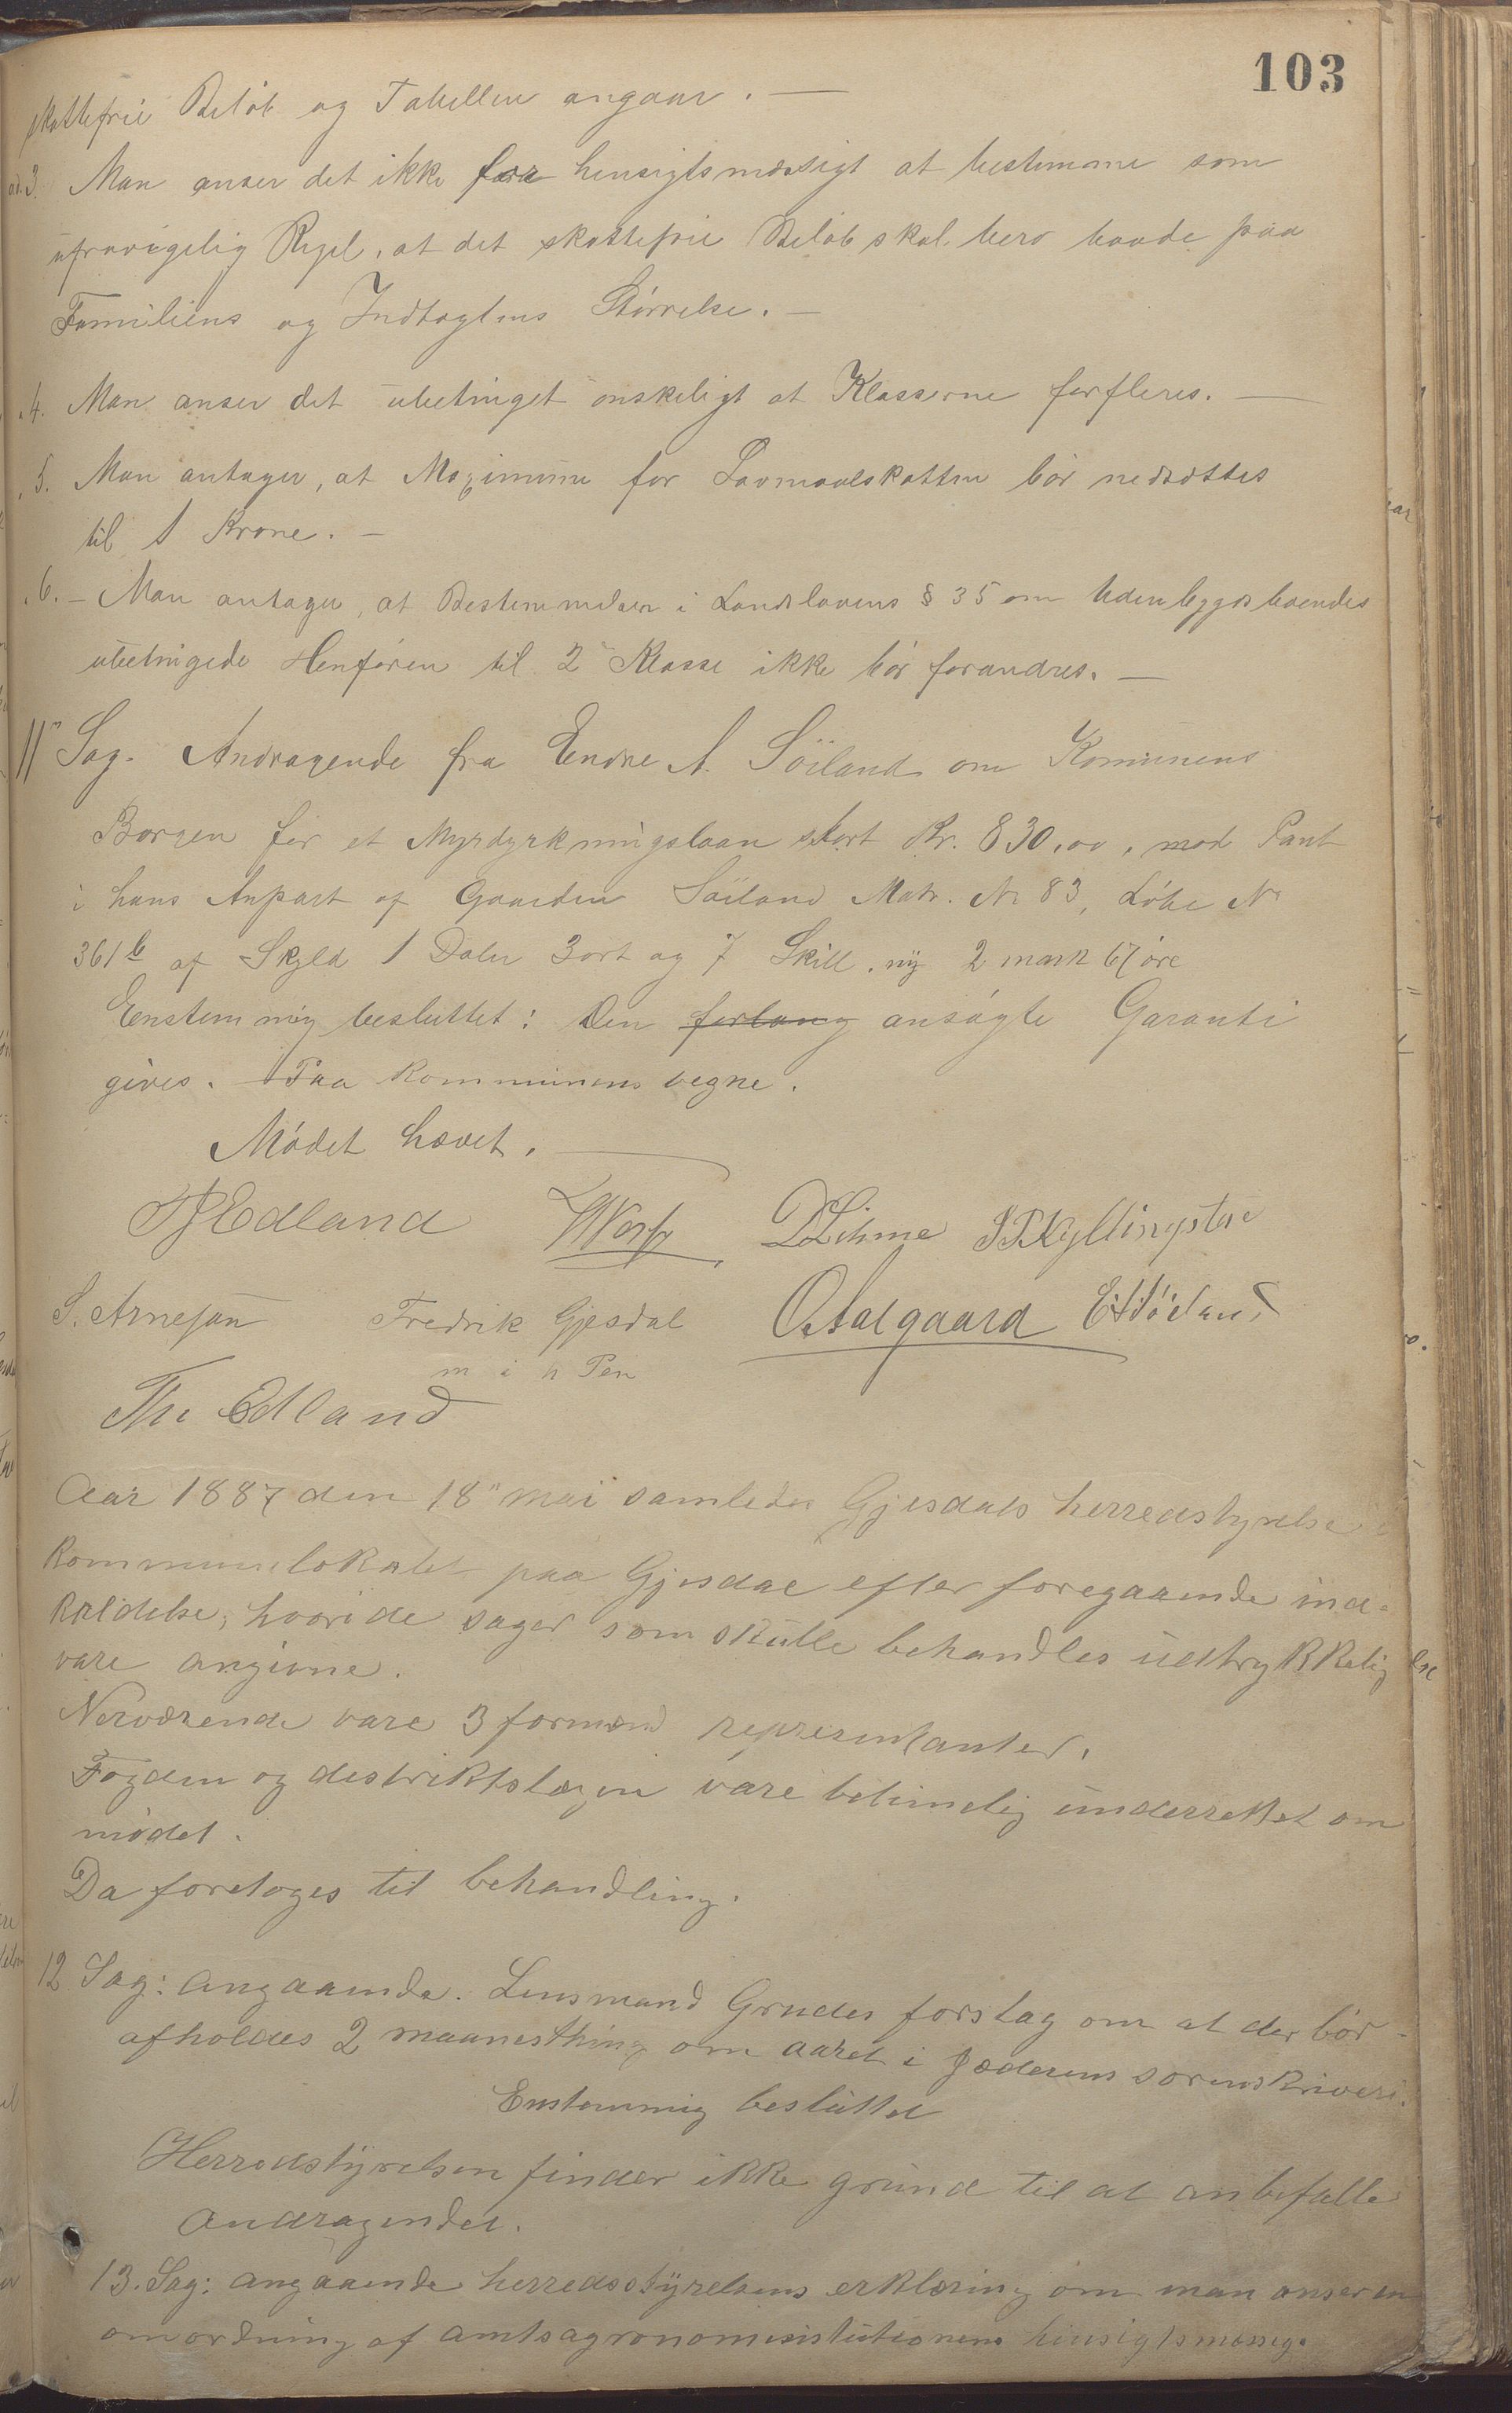 103
skattefrie Beløb og Tabellen angaar. —
ad. 3. Man anser det ikke for hensigtsmæssigt at bestemme som
ufravigelig Regel, at det skattefrie Beløb skal bero baade paa
Familiens og Indtægtens Størrelse. —
" 4. Man anser det ubetinget ønskeligt at Klasserne forfleres. —
" 5. Man antager, at Maximum for Lavmaalskatten bør nedsættes
til 1 Krone. —
" 6. — Man antager, at Bestemmelsen i Landslovens § 35 om Udenbygdsboendes
ubetingede Henføren til 2den Klasse ikke bør forandres. —
11te Sag. Andragende fra Endre A. Söiland om Komunens
Borgen for et Myrdyrkningslaan stort Kr. 830,00, mod Pant
i hans Anpart af Gaarden Söiland Matr. Nr 83, Løbe Nr
361b af Skyld 1 Daler 3 ort og 7 Skill. ny 2 mark 67 øre
Enstemmig besluttet: Den forlang ansøgte Garanti
gives. Paa Kommunens vegne.
Mødet hævet.
Edland DLihme Kyllingstad
S. Arnesen Fredrik Gjesdal O Aalgaard E A Söiland
m i h Pen
Th: Edland
Aar 1887 den 18de mai samledes Gjesdals herredstyrelse i
Kommunelokalet paa Gjesdal efter foregaaende ind-
kaldelse, hvori de sager som skulle behandles udtrykkelig
vare angivne.
Nerværende vare 3 formænd representanter.
Fogden og distriktslægen vare betimelig underrettet om
mødet.
Da foretoges til behandling.
12 Sag: angaaende. Lensmand Grudes forslag om at der bør
afholdes 2 maanesthing om aaret i Jæderens sorenskriveri.
Enstemmig besluttet
Herredstyrelsen finder ikke grund til at anbefalle
andragendet.
13. Sag: angaaende herredsstyrelsens erklæring om man anser en
omordning af amtsagronominstitutionene hinsigtsmæssig.